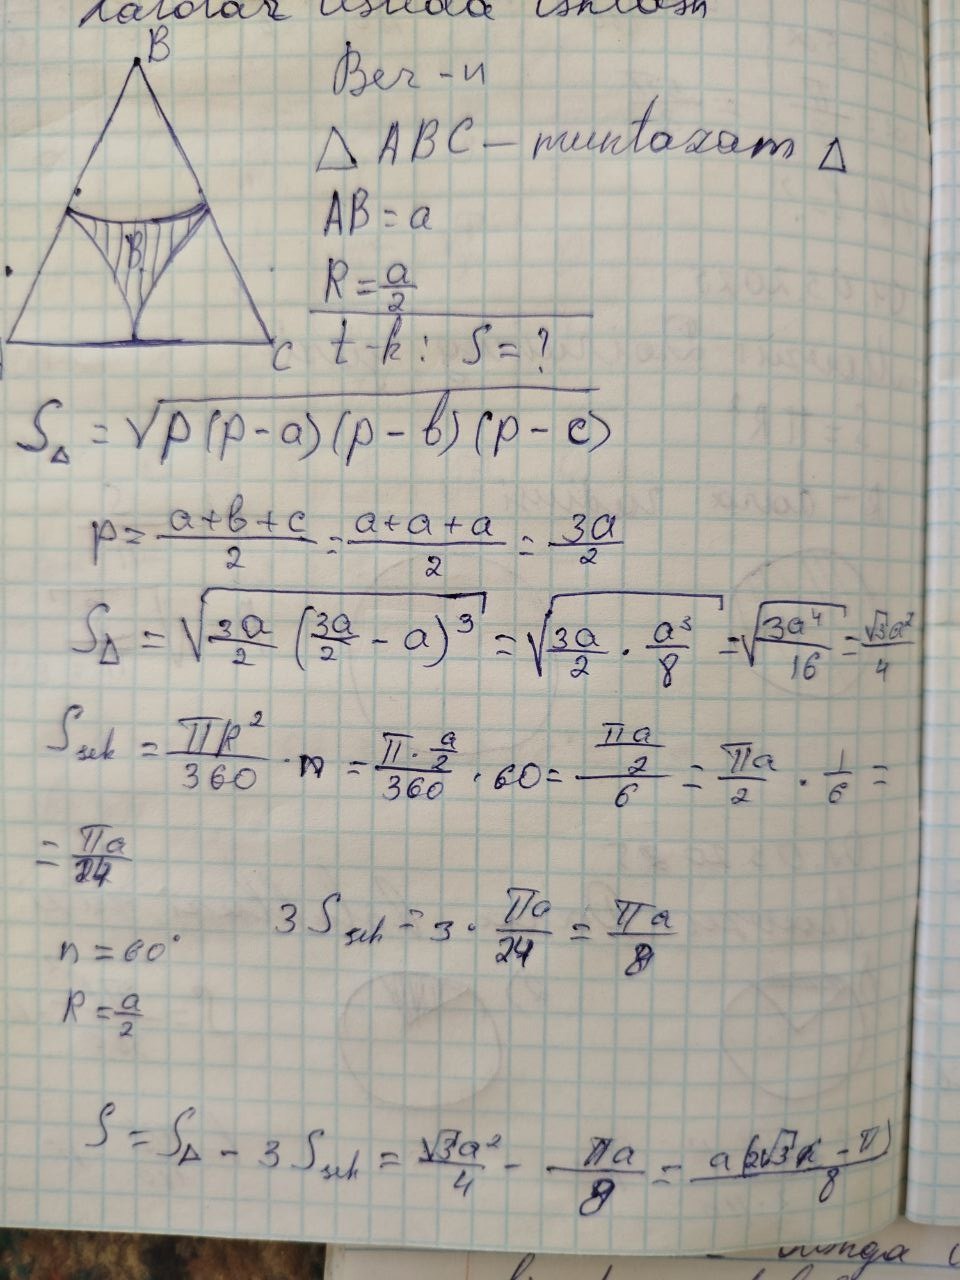 B
Ber-n
△ ABC - muntazam △
AB = a
R = a/2
t-k: S = ?
B
C
S△ = √p(p-a)(p-b)(p-c)
p = (a+b+c)/2 = (a+a+a)/2 = 3a/2
S△ = √(3a/2 (3a/2 - a)³) = √(3a/2 · a³/8) = √(3a⁴/16) = √3a²/4
Ssek = πR²/360 · n = (π · a/2)/360 · 60 = (πa/2)/6 = πa/2 · 1/6 =
= πa/24
3 Ssek = 3 · πa/24 = πa/8
n = 60°
R = a/2
S = S△ - 3 Ssek = √3a²/4 - πa/8 =